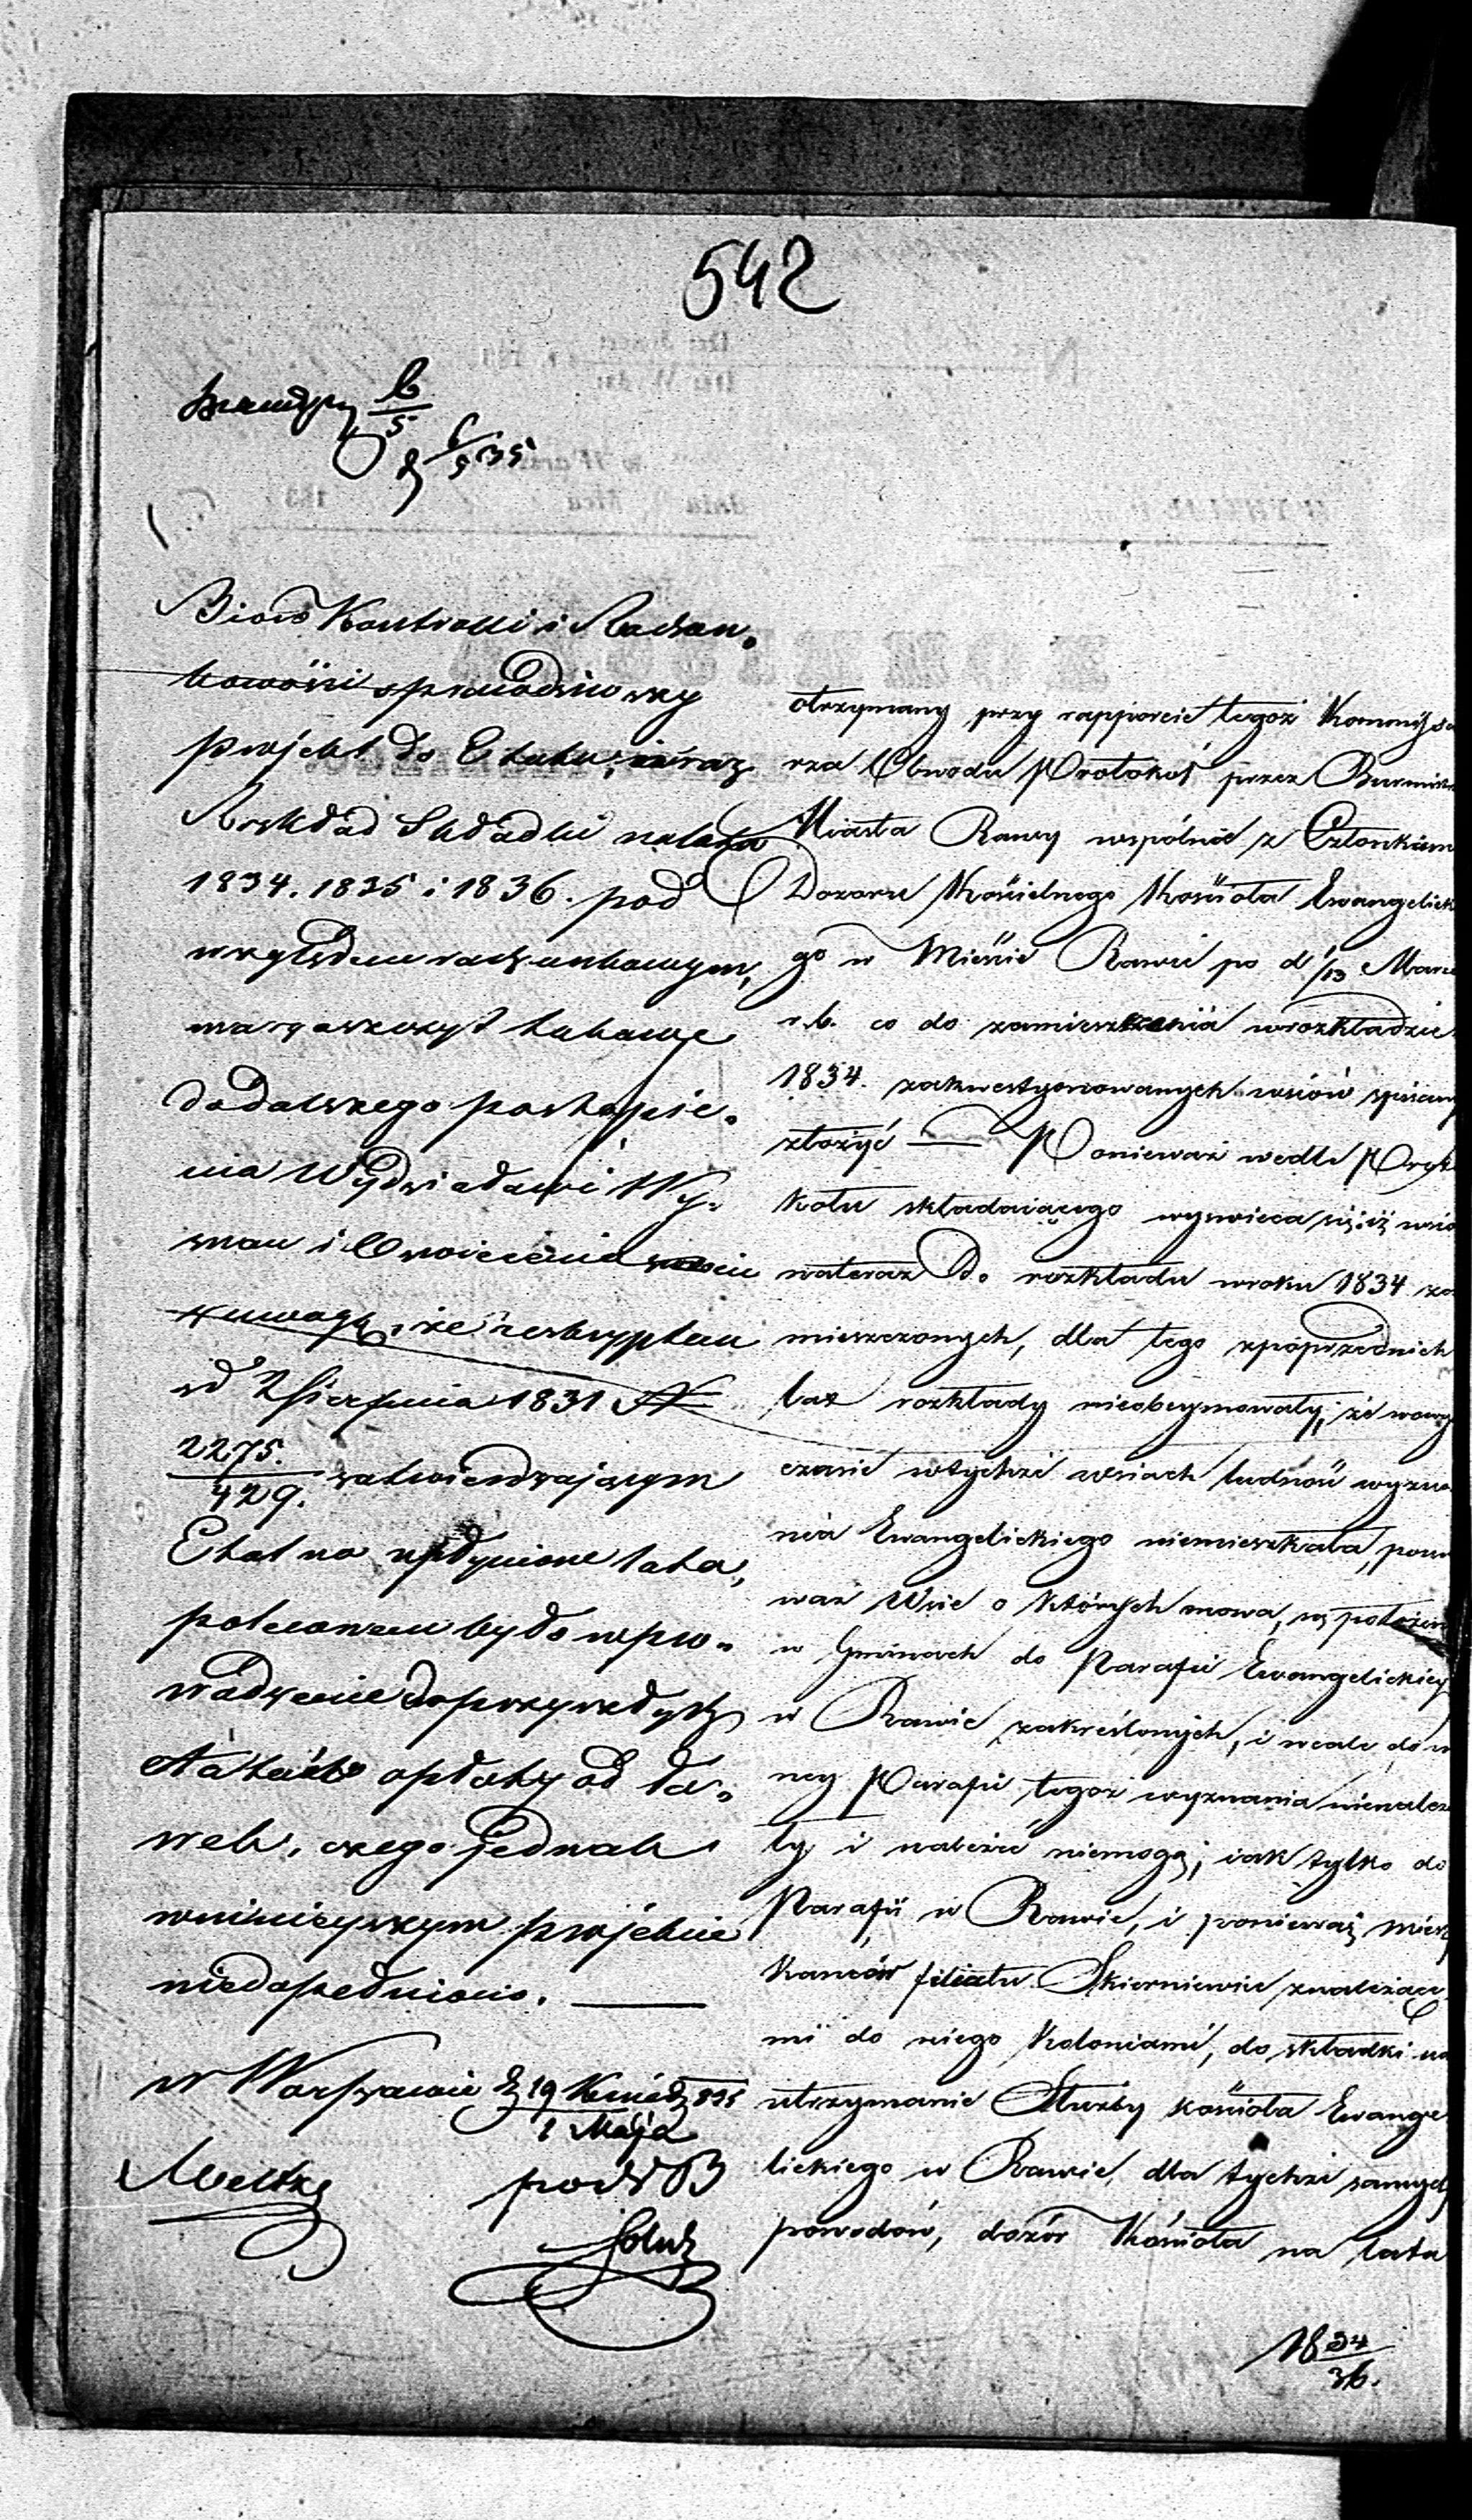 542
6/5
6/5 35
Biuro Kontrolli i Rachun-
kowości sprawdziwszy
projekt do Etatu, i
Rozkład Składki na lata
1834. 1835 i 1836. pod
względem rachunkowym,
takowe
do dalszego postąpie-
nia Wydziałowi Wy-
znań i Oświecenia
uwagą, że reskryptem
od 2 Sierpnia 1831 N
2275./429. zatwierdzającym
Etat na upłynione lata,
polecone było wpro-
wadzenie do przyszłych
Etatów opłaty od ła-
wek, czego jednak
w niniejszym projekcie
niedopełniono. —
w Warszawie d 19 Kwiet 835
1 Maja
otrzymany przy rapporcie tegoż Kommissa
rza Obwodu Protokół przez Burmist
Miasta Rawy wspólnie z Członkiem
Dozoru Kościelnego Kościoła Ewangelick
go w Mieście Rawie po d 1/13 Marc
r. b. co do zamieszczenia w rozkładzie
1834. zakwestyonowanych wsiów spisany
złożyć — Ponieważ wedle Proto
kołu składaiącego wyswieca się, iż wsio
nateraz do rozkładu w roku 1834 za
mieszczonych, dla tego z poprzednich
lat rozkłady nieobeymowały, że wowy
czasie w tychże wsiach ludność wyzna
nia Ewangelickiego niemieszkała, ponie
waż Wsie o których mowa, są położone
w Gminach do Parafii Ewangelickiey
w Rawie zakreślonych, i wcale do in
ney Parafii tegoż wyznania nienależa
ły i należeć niemogą, iak tylko do
Parafii w Rawie, i ponieważ miesz
kańców filiału Skierniewic z należące
mi do niego Koloniami, do składki na
utrzymanie Służby kościoła Ewange
lickiego w Rawie, dla tychże samych
powodów, dozór Kościoła na lata
18 34/36.